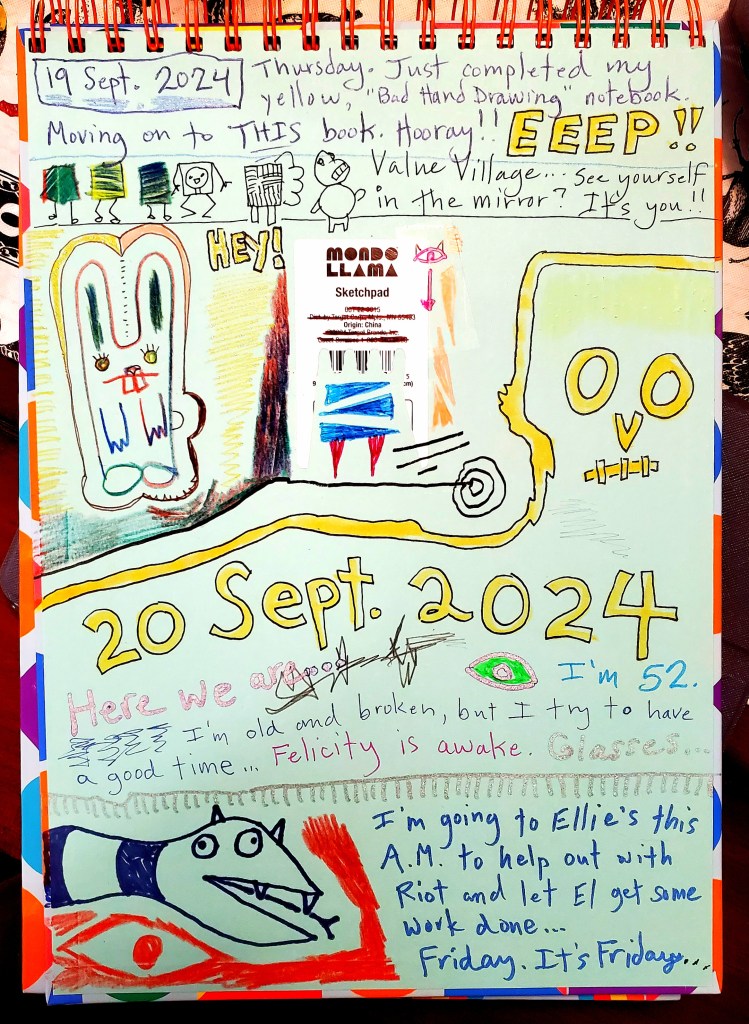 19 Sept. 2024
Thursday. Just completed my
yellow, "Bad Hand Drawing" notebook.
Moving on to THIS book. Hooray!!
EEEP!!
Value Village... See yourself
in the mirror? It's you!!
HEY!
MONDO
LLAMA
Sketchpad
Origin: China
20 Sept. 2024
Here we are...
I'm 52.
I'm old and broken, but I try to have
a good time... Felicity is awake. Glasses...
I'm going to Ellie's this
A.M. to help out with
Riot and let El get some
work done...
Friday. It's Friday...